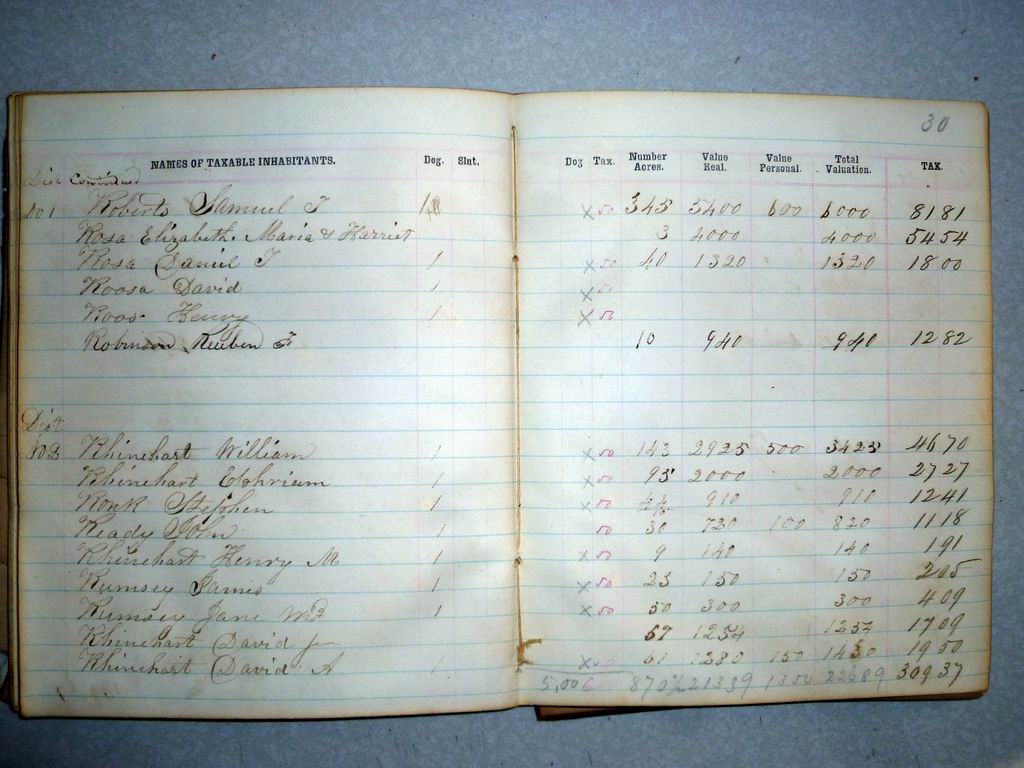 30
NAMES OF TAXABLE INHABITANTS. Dog. Slut. Dog Tax. Number Acres. Value Real. Value Personal. Total Valuation. TAX.
Dist Continued
101 Roberts Samuel T x 50 345 5400 600 6000 8181
Rosa Elizabeth, Maria & Harriet 3 4000 4000 5454
Rosa Daniel T 1 x 50 40 1320 1320 1800
Roosa David 1 x 50
Roos Henry 1 x 50
Robinson Reuben T 10 940 940 1282
Dist
102 Rhinehart William 1 x 50 143 2925 500 3425 4670
Rhinehart Ephriam 1 x 50 93 2000 2000 2727
Ronk Stephen 1 x 50 910 910 1241
Ready John 1 50 30 720 100 820 1118
Rhinehart Henry M 1 x 50 9 140 140 191
Rumsey James 1 x 50 23 150 150 205
Rumsey Jane 1 x 50 50 300 300 409
Rhinehart David Jr 57 1254 1254 1709
Rhinehart David A 1 x 50 61 1280 150 1430 1950
5,00 870½ 21339 1350 22689 30937